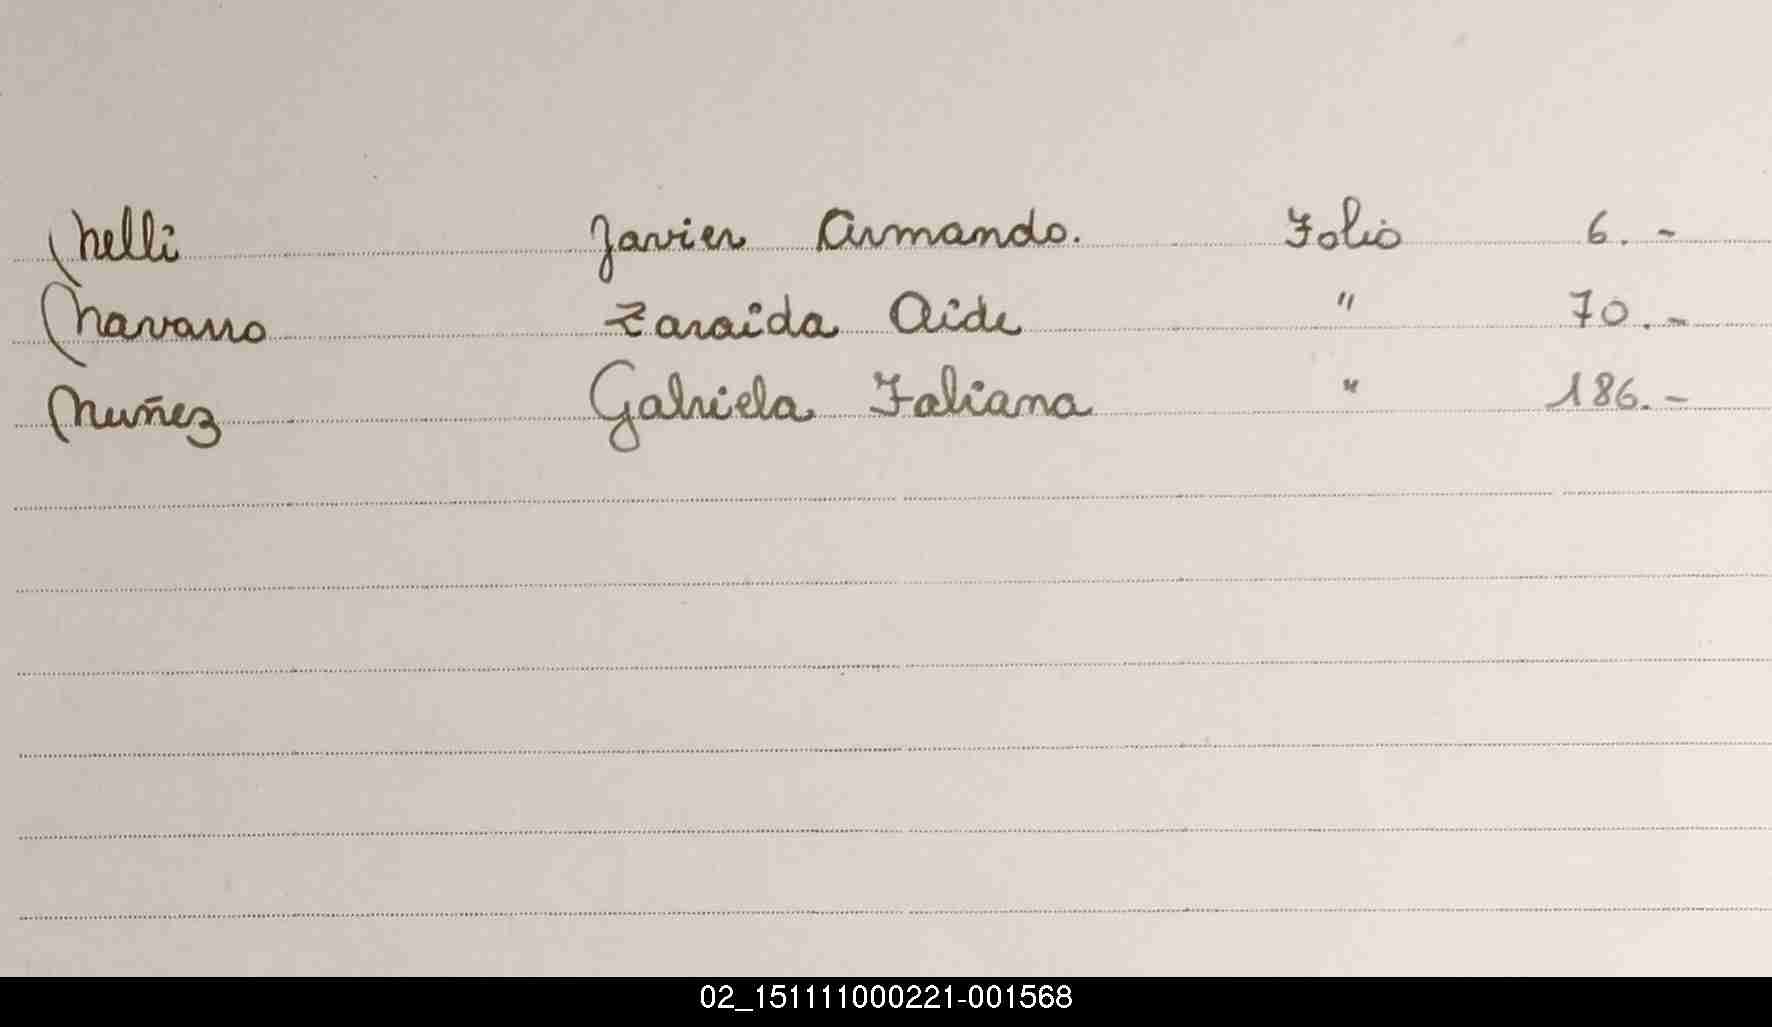 Nelli Javier Armando. Folio 6.-
Navarro Zaraida Aide " 70.-
Nuñez Gabriela Faliana " 186.-
02_151111000221-001568